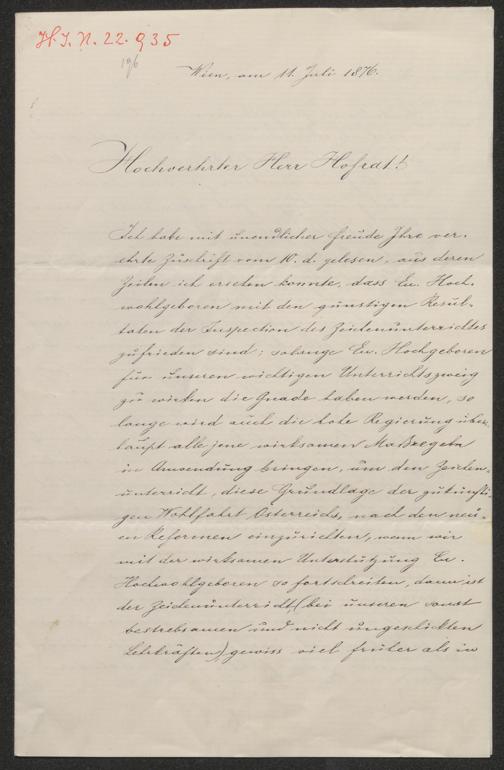 H.I.N. 22.935
196
Wien, am 11. Juli 1876.
Hochverehrter Herr Hofrat!
Ich habe mit unendlicher Freude Ihre ver-
ehrte Zuschrift vom 10. d. gelesen, aus deren
Zeilen ich ersehen konnte, dass Eu. Hoch-
wohlgeboren mit den günstigen Resul-
taten der Inspection des Zeichenunterrichtes
zufrieden sind; solange Eu. Hochgeboren
für unseren wichtigen Unterrichtszweig
zu wirken die Gnade haben werden, so
lange wird auch die hohe Regierung über-
haupt alle jene wirksamen Maßregeln
in Anwendung bringen, um den Zeichen-
unterricht, diese Grundlage der zukünfti-
gen Wohlfahrt Österreichs, nach den neu-
en Reformen einzurichten, wenn wir
mit der wirksamen Unterstützung Eu.
Hochwohlgeboren so fortschreiten, dann ist
der Zeichenunterricht, (bei unseren sonst
bestrebsamen und nicht ungeschickten
Lehrkräften), gewiss viel früher als in